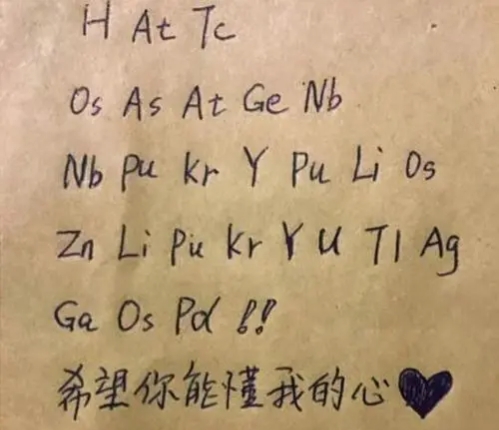 H At Tc
Os As At Ge Nb
Nb Pu Kr Y Pu Li Os
Zn Li Pu Kr Y U Tl Ag
Ga Os Pd !!
希望你能懂我的心♥